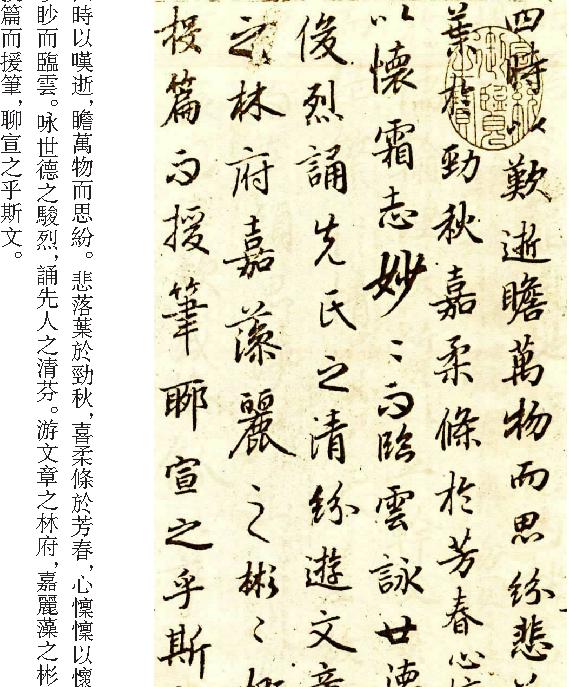 四時以歎逝瞻萬物而思紛悲
葉於勁秋嘉柔條於芳春心
以懷霜志妙〻而臨雲詠世德
俊烈誦先氏之清紛遊文章
之林府嘉藻麗之彬〻
投篇而援筆聊宣之乎斯
時以嘆逝，瞻萬物而思紛。悲落葉於勁秋，喜柔條於芳春，心懍懍以懷
眇而臨雲。咏世德之駿烈，誦先人之清芬。游文章之林府，嘉麗藻之彬
篇而援筆，聊宣之乎斯文。